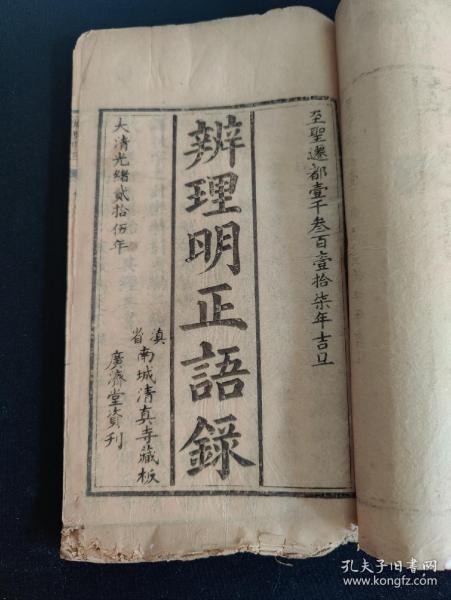 至聖遷都壹千叁百壹拾柒年吉旦
辨理明正語錄
大清光緒貳拾伍年
滇省南城清真寺藏板
廣濟堂資刊
孔夫子旧书网
www.kongfz.com